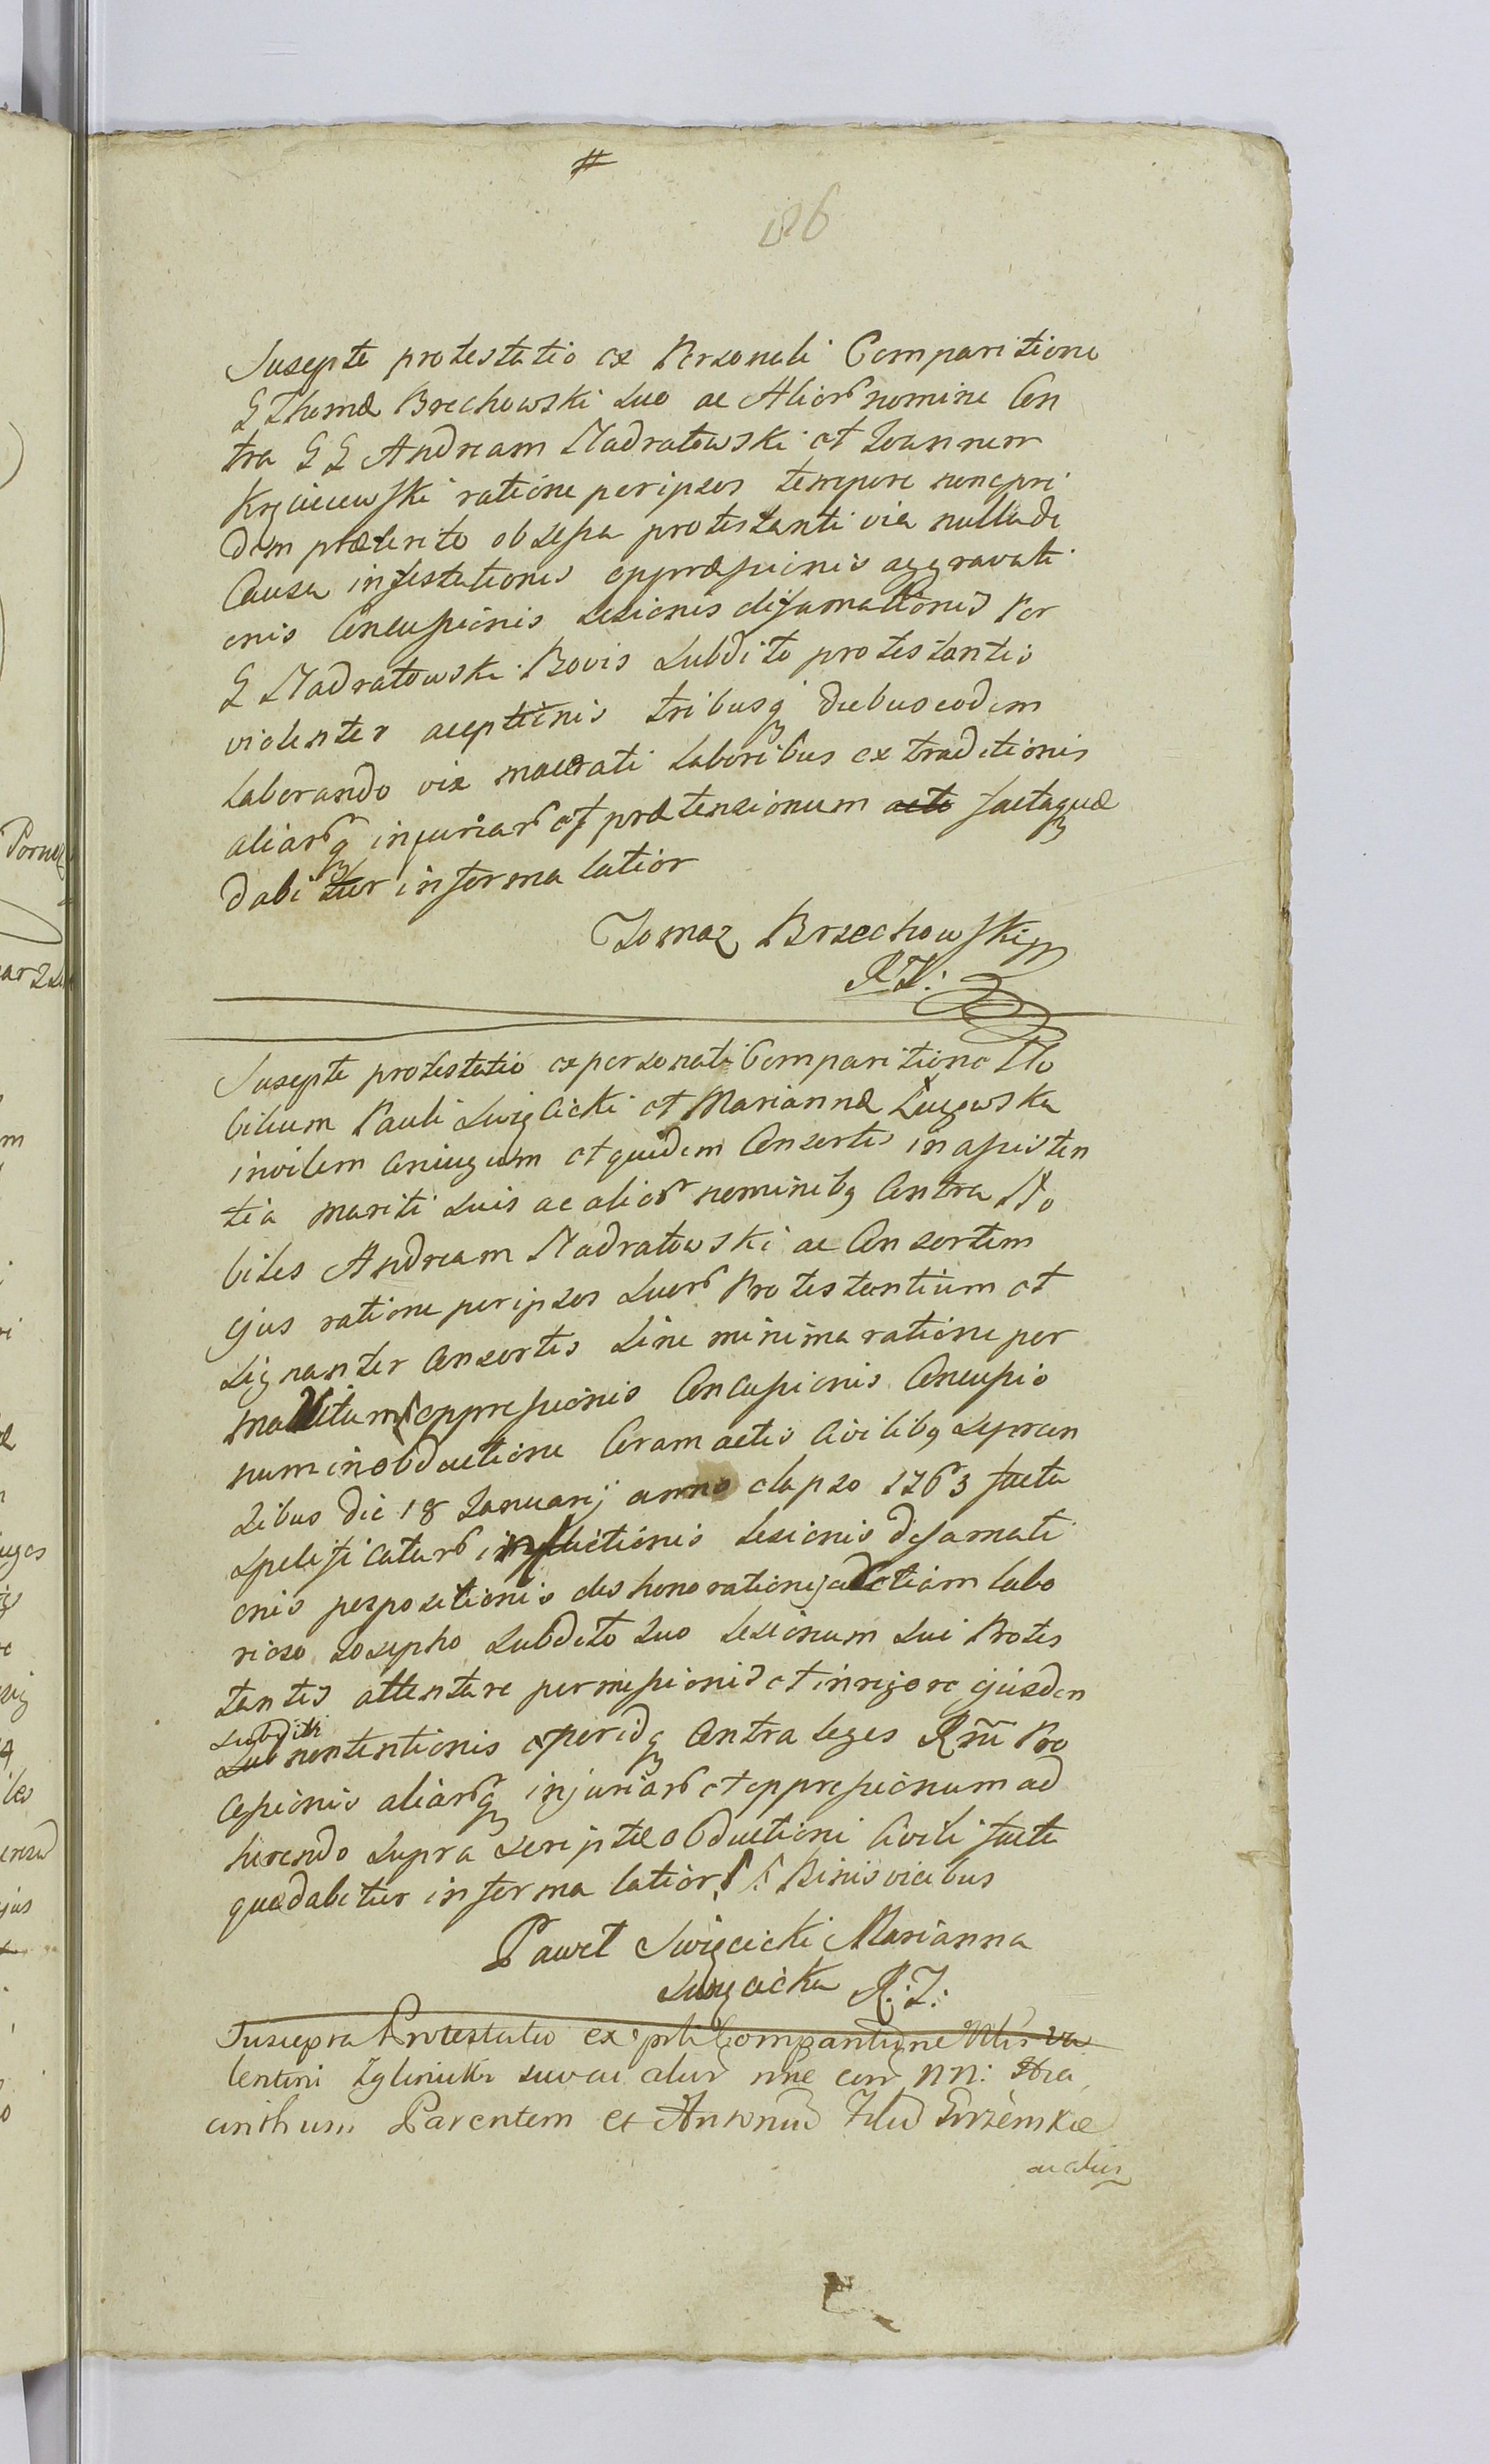 #
126
Suscepta protestatio ex Personali Comparitione
G Thomæ Brechowski suo ac Alior nomine Con
tra G G Andream Nadratowski et Joannem
ratione peripsos tempore nonpri
dem præterito oblessa protestanti via nullade
Causa infestationis oppræssionis aggravati
onis Concussionis Lesionis difamationis Per
G Nadratowski Bovis Subdito protestantis
violenter aceptionis tribusq diebus eodem
laborando vix macerati laboribus extraditionis
aliarq injuriar et prætensionum acto factaquæ
dabitur in forma latior
Tomaz Brzechowski
RZ:
Suscepta protestatio ex personali Comparitione No
bilium Pauli Swięcicki et Mariannæ
invicem Coniugum et quidem Consortis in assisten
tia mariti suis ac alior nominibq Contra No
biles Andream Nadratowski ac Consortem
ejus ratione peripsos suor Protestantium et
signanter Consortis sine minima ratione per
oppressionis Concusionis Concussio
num in obductione Coram actis Civilibq
die 18 Januarij anno elapso 1763 facta
Lesionis difamati
onis perpositionis dishonorationis etiam labo
rioso Josepho Subdito suo Lesionum sui Protes
tantis attentare permissionis et in rigore ejusdem
subditi
suo nontentionis Contra leges Rnĩ Pro
cessionis aliarq injuriar et oppressionum ad
herendo supra scriptæ obductioni Civili facta
quædabitur in forma latiori Binis vicibus
Paweł Swięcicki Marianna
R:Z:
Suscepta Protestatio ex prli Comparitione Nblis Va
lentini suo ac alior nne con NN: Hia
cinthum Parentem et Antonium Filium
ac alios